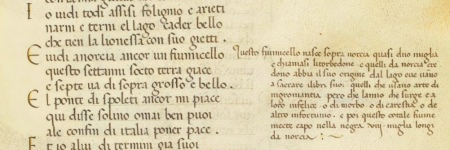 I o uidi todi assisi foligno e arieti
narni e terni el lago eader bello
che tien la lionessa con suo gietti .
E uidi anorcia ancor un fiumicello
questo settanni socto terra giace
e septe ua di sopra grosso e bello .
E l ponti di spoleti ancor mi piace
qui disse solino omai ben puoi
ale confin di italia poner pace .
di termini gia suoi
Questo fiumicello nasce sopra norcia quasi duo miglia
e chiamasi e quelli da norcia cre
dono abbia il suo origine dal lago oue uano
a sacrare libri suoi quelli che usano arte di
nigromantia . pero che lanno che surge e a
loro infelice o di morbo o di carestia o de
altro infortunio . e poi questo cotale fiume
mecte capo nella negra miglia longi
da norcia